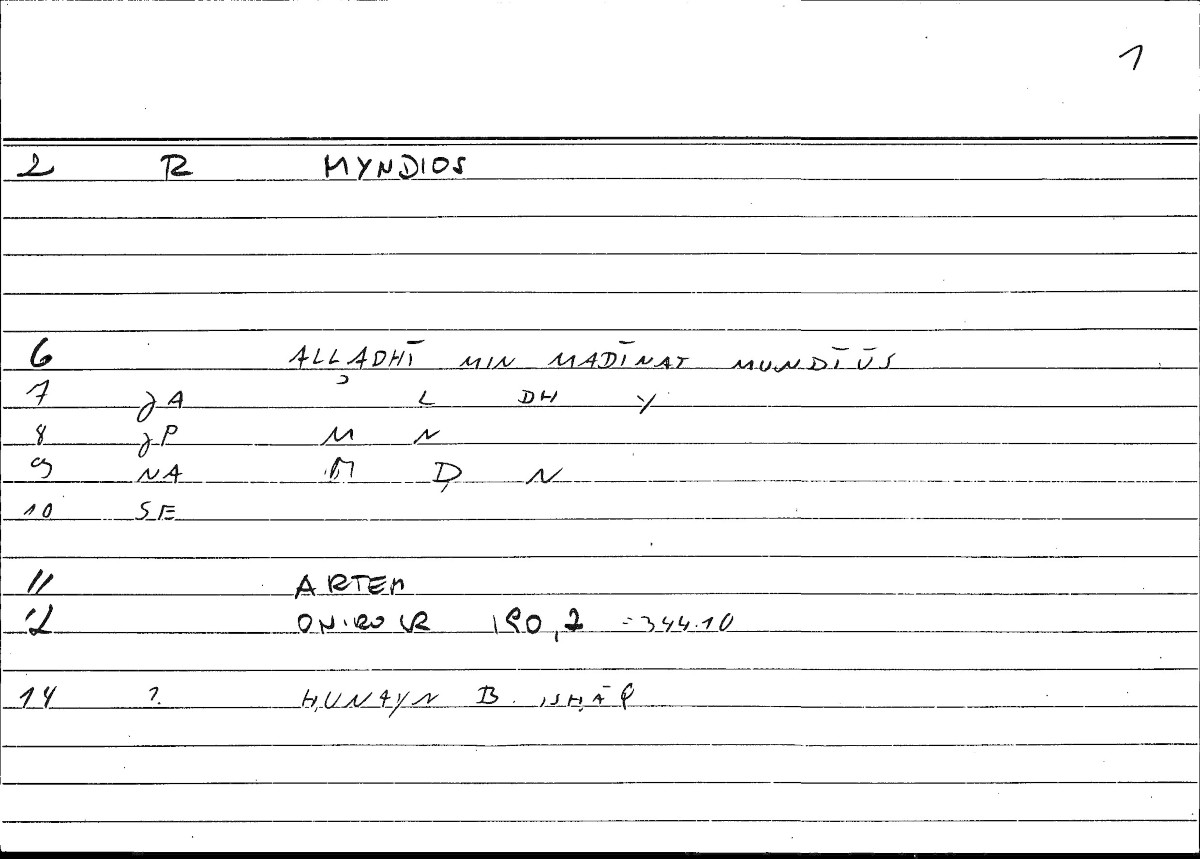 1
2 R MYNDIOS
6 ALLADHĪ MIN MADĪNAT MUNDĪŪS
7 JA ʾ L DH Y
8 JP M N
9 NA M D N
10 SE
11 ARTEM
12 ONIROCR 190,2 =344.10
14 ?. ḤUNAYN B. ISḤĀQ